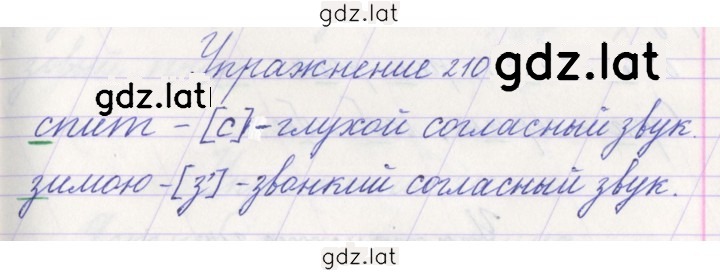 gdz.lat
Упражнение 210 gdz.lat
gdz.lat
спит - [с] - глухой согласный звук.
зимою - [з'] - звонкий согласный звук.
gdz.lat